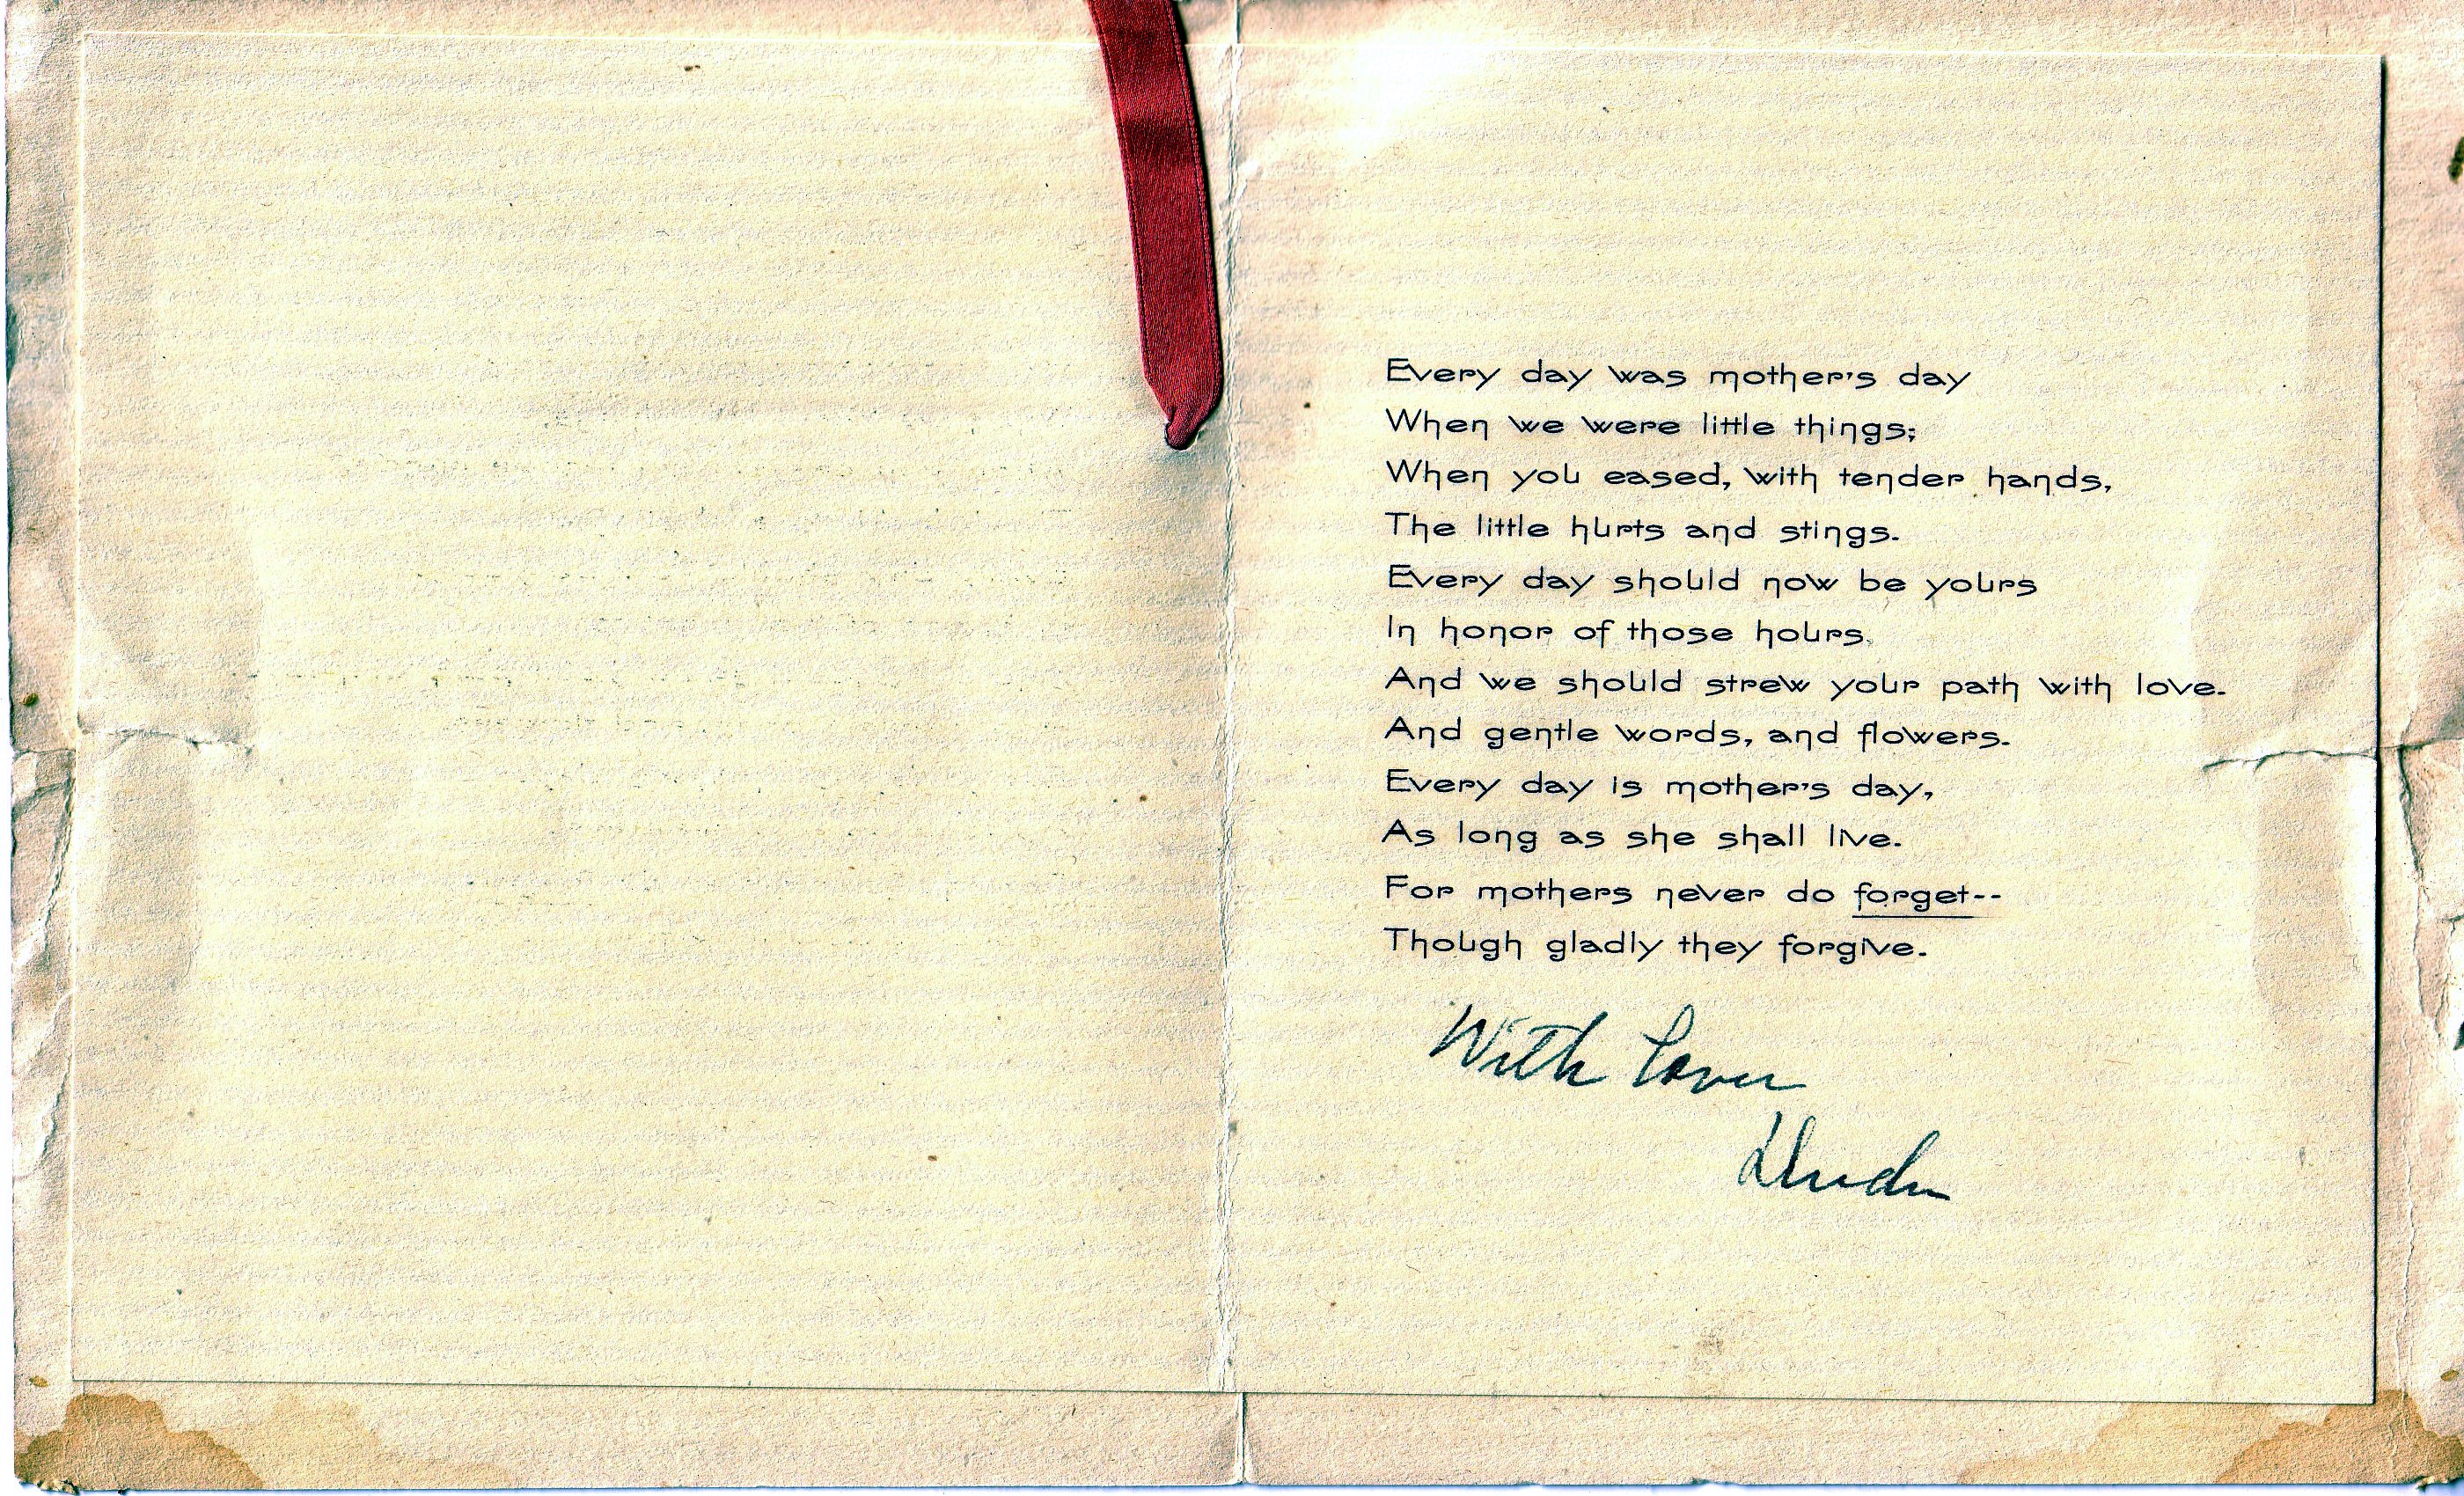 Every day was mother's day
When we were little things;
When you eased, with tender hands,
The little hurts and stings.
Every day should now be yours
In honor of those hours.
And we should strew your path with love.
And gentle words, and flowers.
Every day is mother's day,
As long as she shall live.
For mothers never do forget--
Though gladly they forgive.
With Love